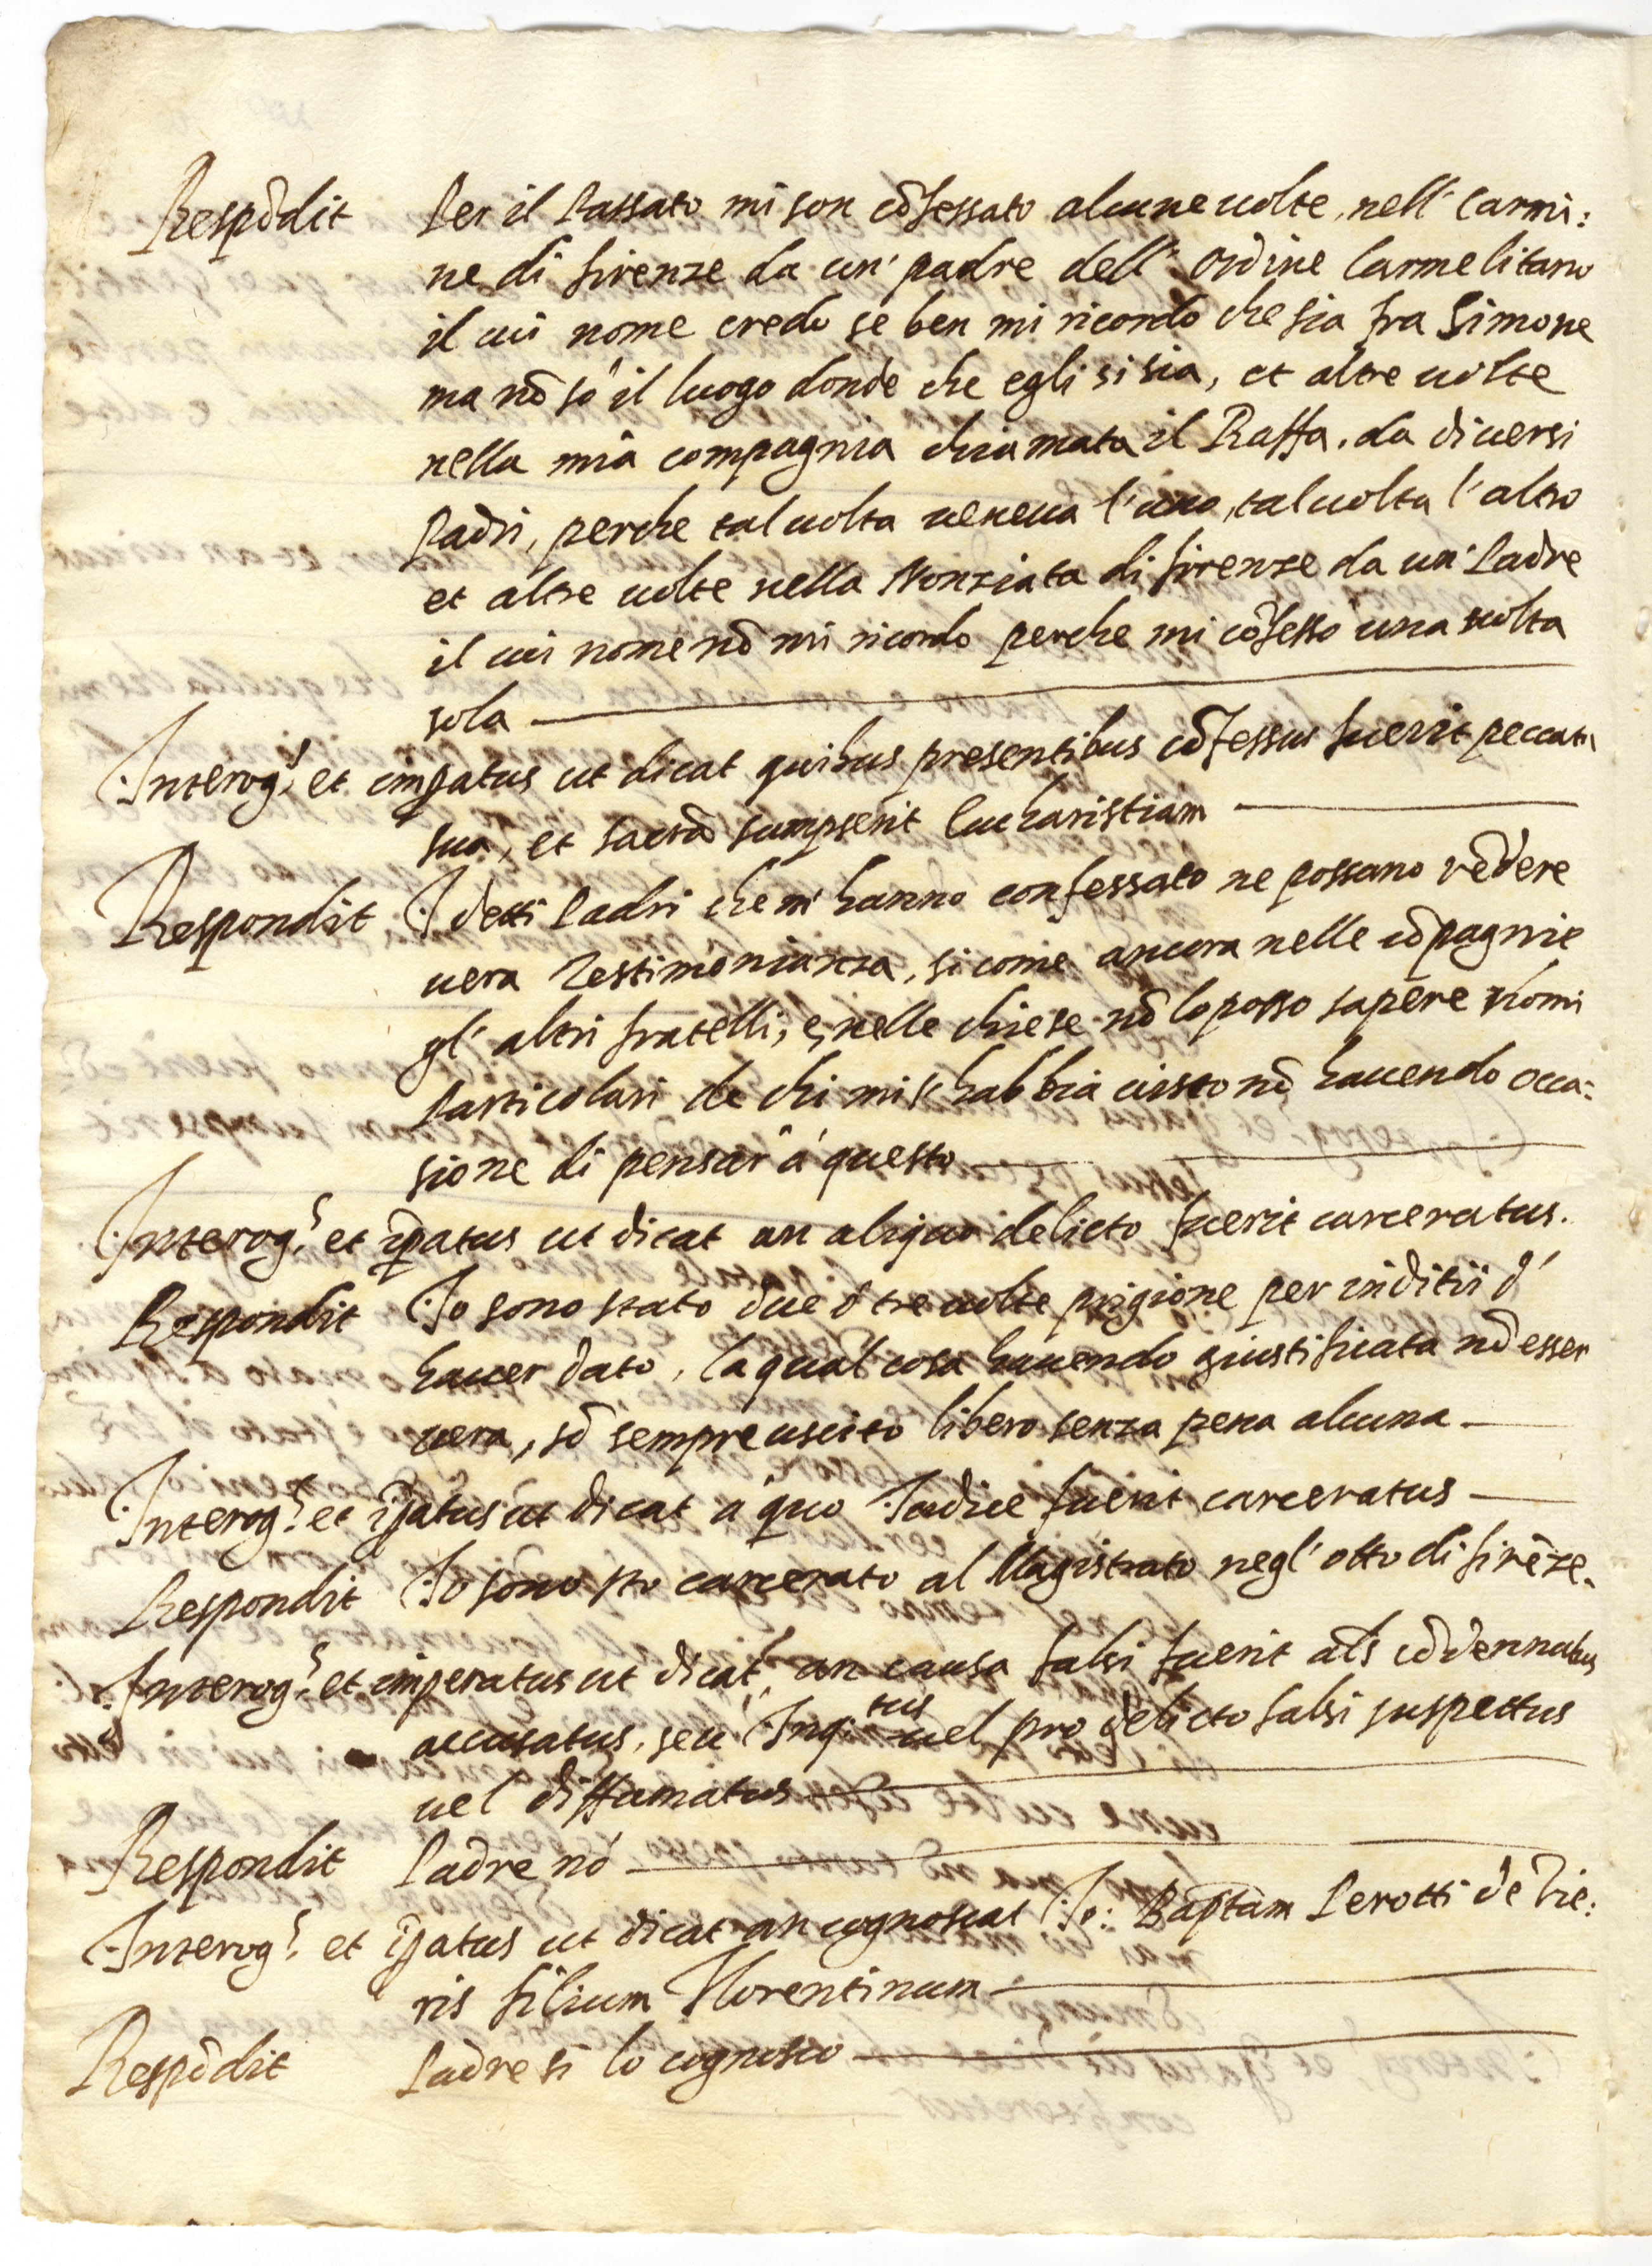 Respõdit Per il Passato mi son cõfessato alcune uolte, nell' Carmi:
ne di firenze da un' padre dell' Ordine Carmelitano
il cui nome credo se ben mi ricordo che sia fra Simone
ma nõ sò il luogo donde che egli si sia, et altre uolte
nella mia compagnia chiamata il Raffa. da diuersi
Padri, perche tal uolta ueneua l'uno, tal uolta l'altro
et altre uolte nella Nonziata di firenze da un' Padre
il cui nome nõ mi ricordo perche mi cõfessò una uolta
sola
Interog.s et impatus ut dicat quibus presentibus cõfessus fuerit peccata
sua, et sacrã sumpserit Eucharistiam
Respondit I detti Padri che mi hanno confessato ne possano rẽdere
uera Testimonianza, si come ancora nelle cõpagnie
gl' altri fratelli, e, nelle chiese nõ lo posso sapere Nomi
Particolari de chi mi s' habbia uisto nõ hauendo occa:
sione di pensar à questo
Interog.s et ip̃atus ut dicat an aliquo delicto fuerit carceratus.
Respondit Io sono stato due ò tre uolte prigione per inditii d'
hauer dato, la qual cosa hauendo giustificata nõ esser
uera, sõ sempre uscito libero senza pena alcuna
Interog.s et ip̃atus ut dicat à quo Iudice fuerit carceratus
Respondit Io sono sto carcerato al Magistrato negl' otto di firẽze.
Interog.s et imperatus ut dicat, an causa falsi fuerit als cõdennatus
accusatus, seu Inq.tus uel pro delicto falsi suspettus
uel diffamatus
Respondit Padre nò
Interog.s et ip̃atus ut dicat an cognoscat Io: Bap̃tam Perotti de Pie:
ris filium Florentinum
Respõdit Padre si lo cognosco